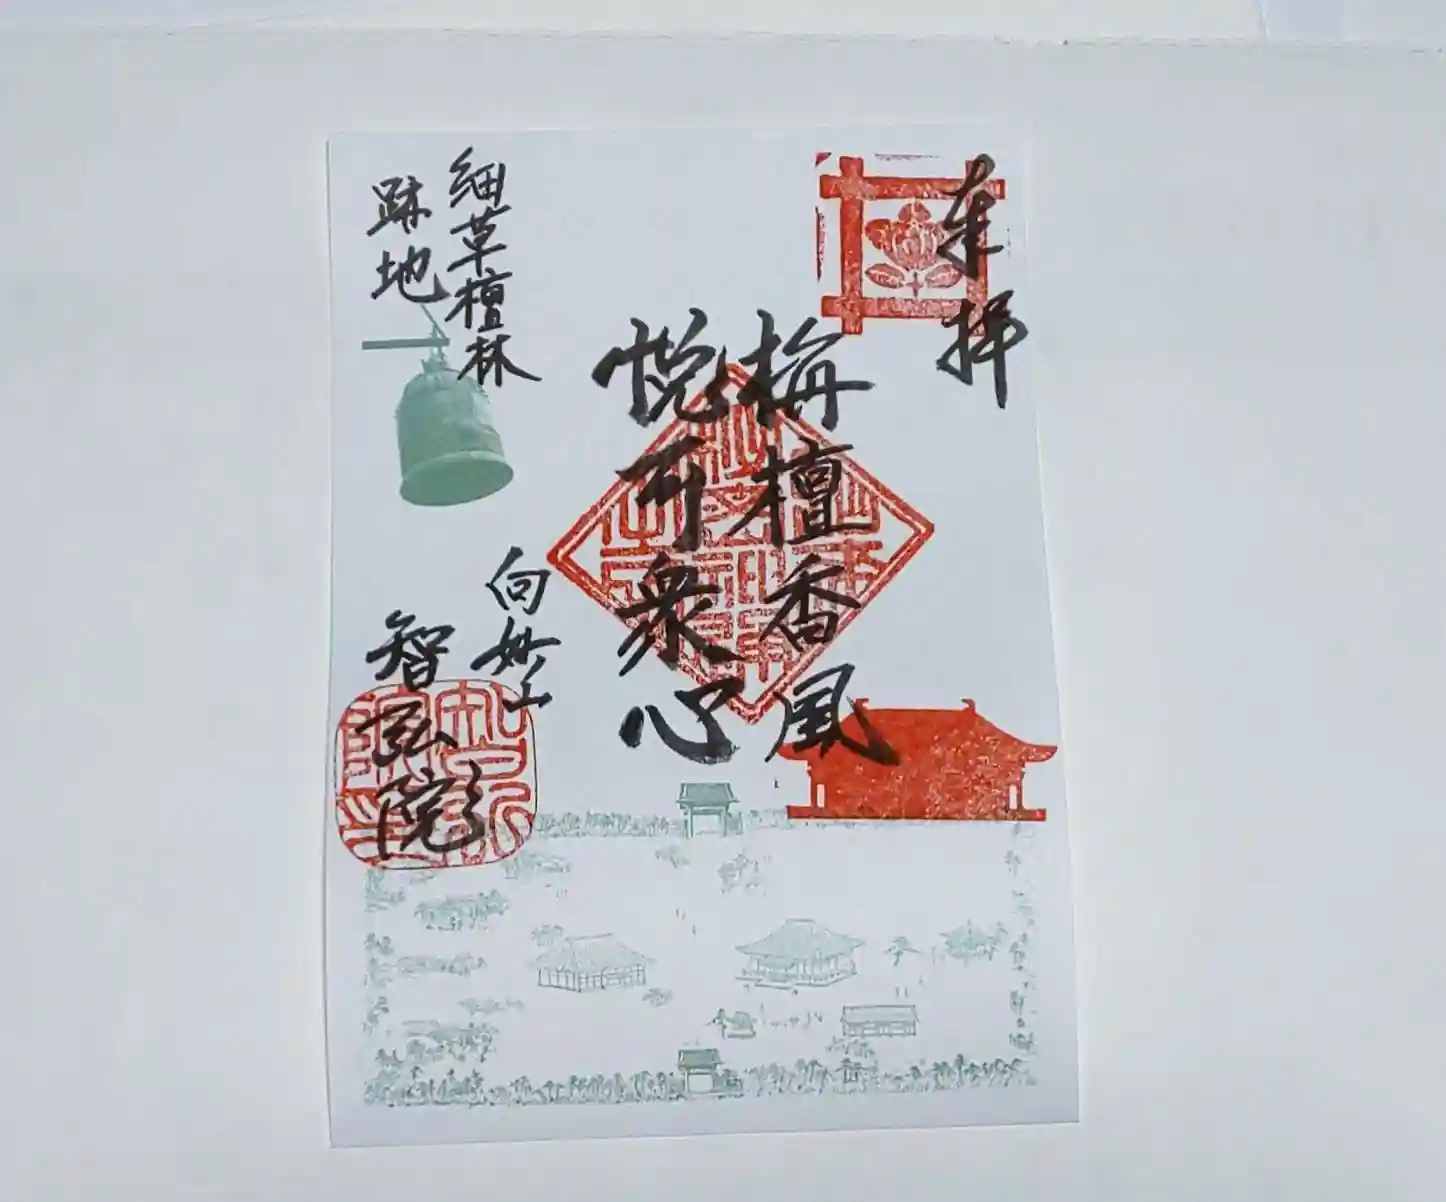 奉拝
栴檀香風
悦可衆心
細草檀林
跡地
向妙山
智弘院